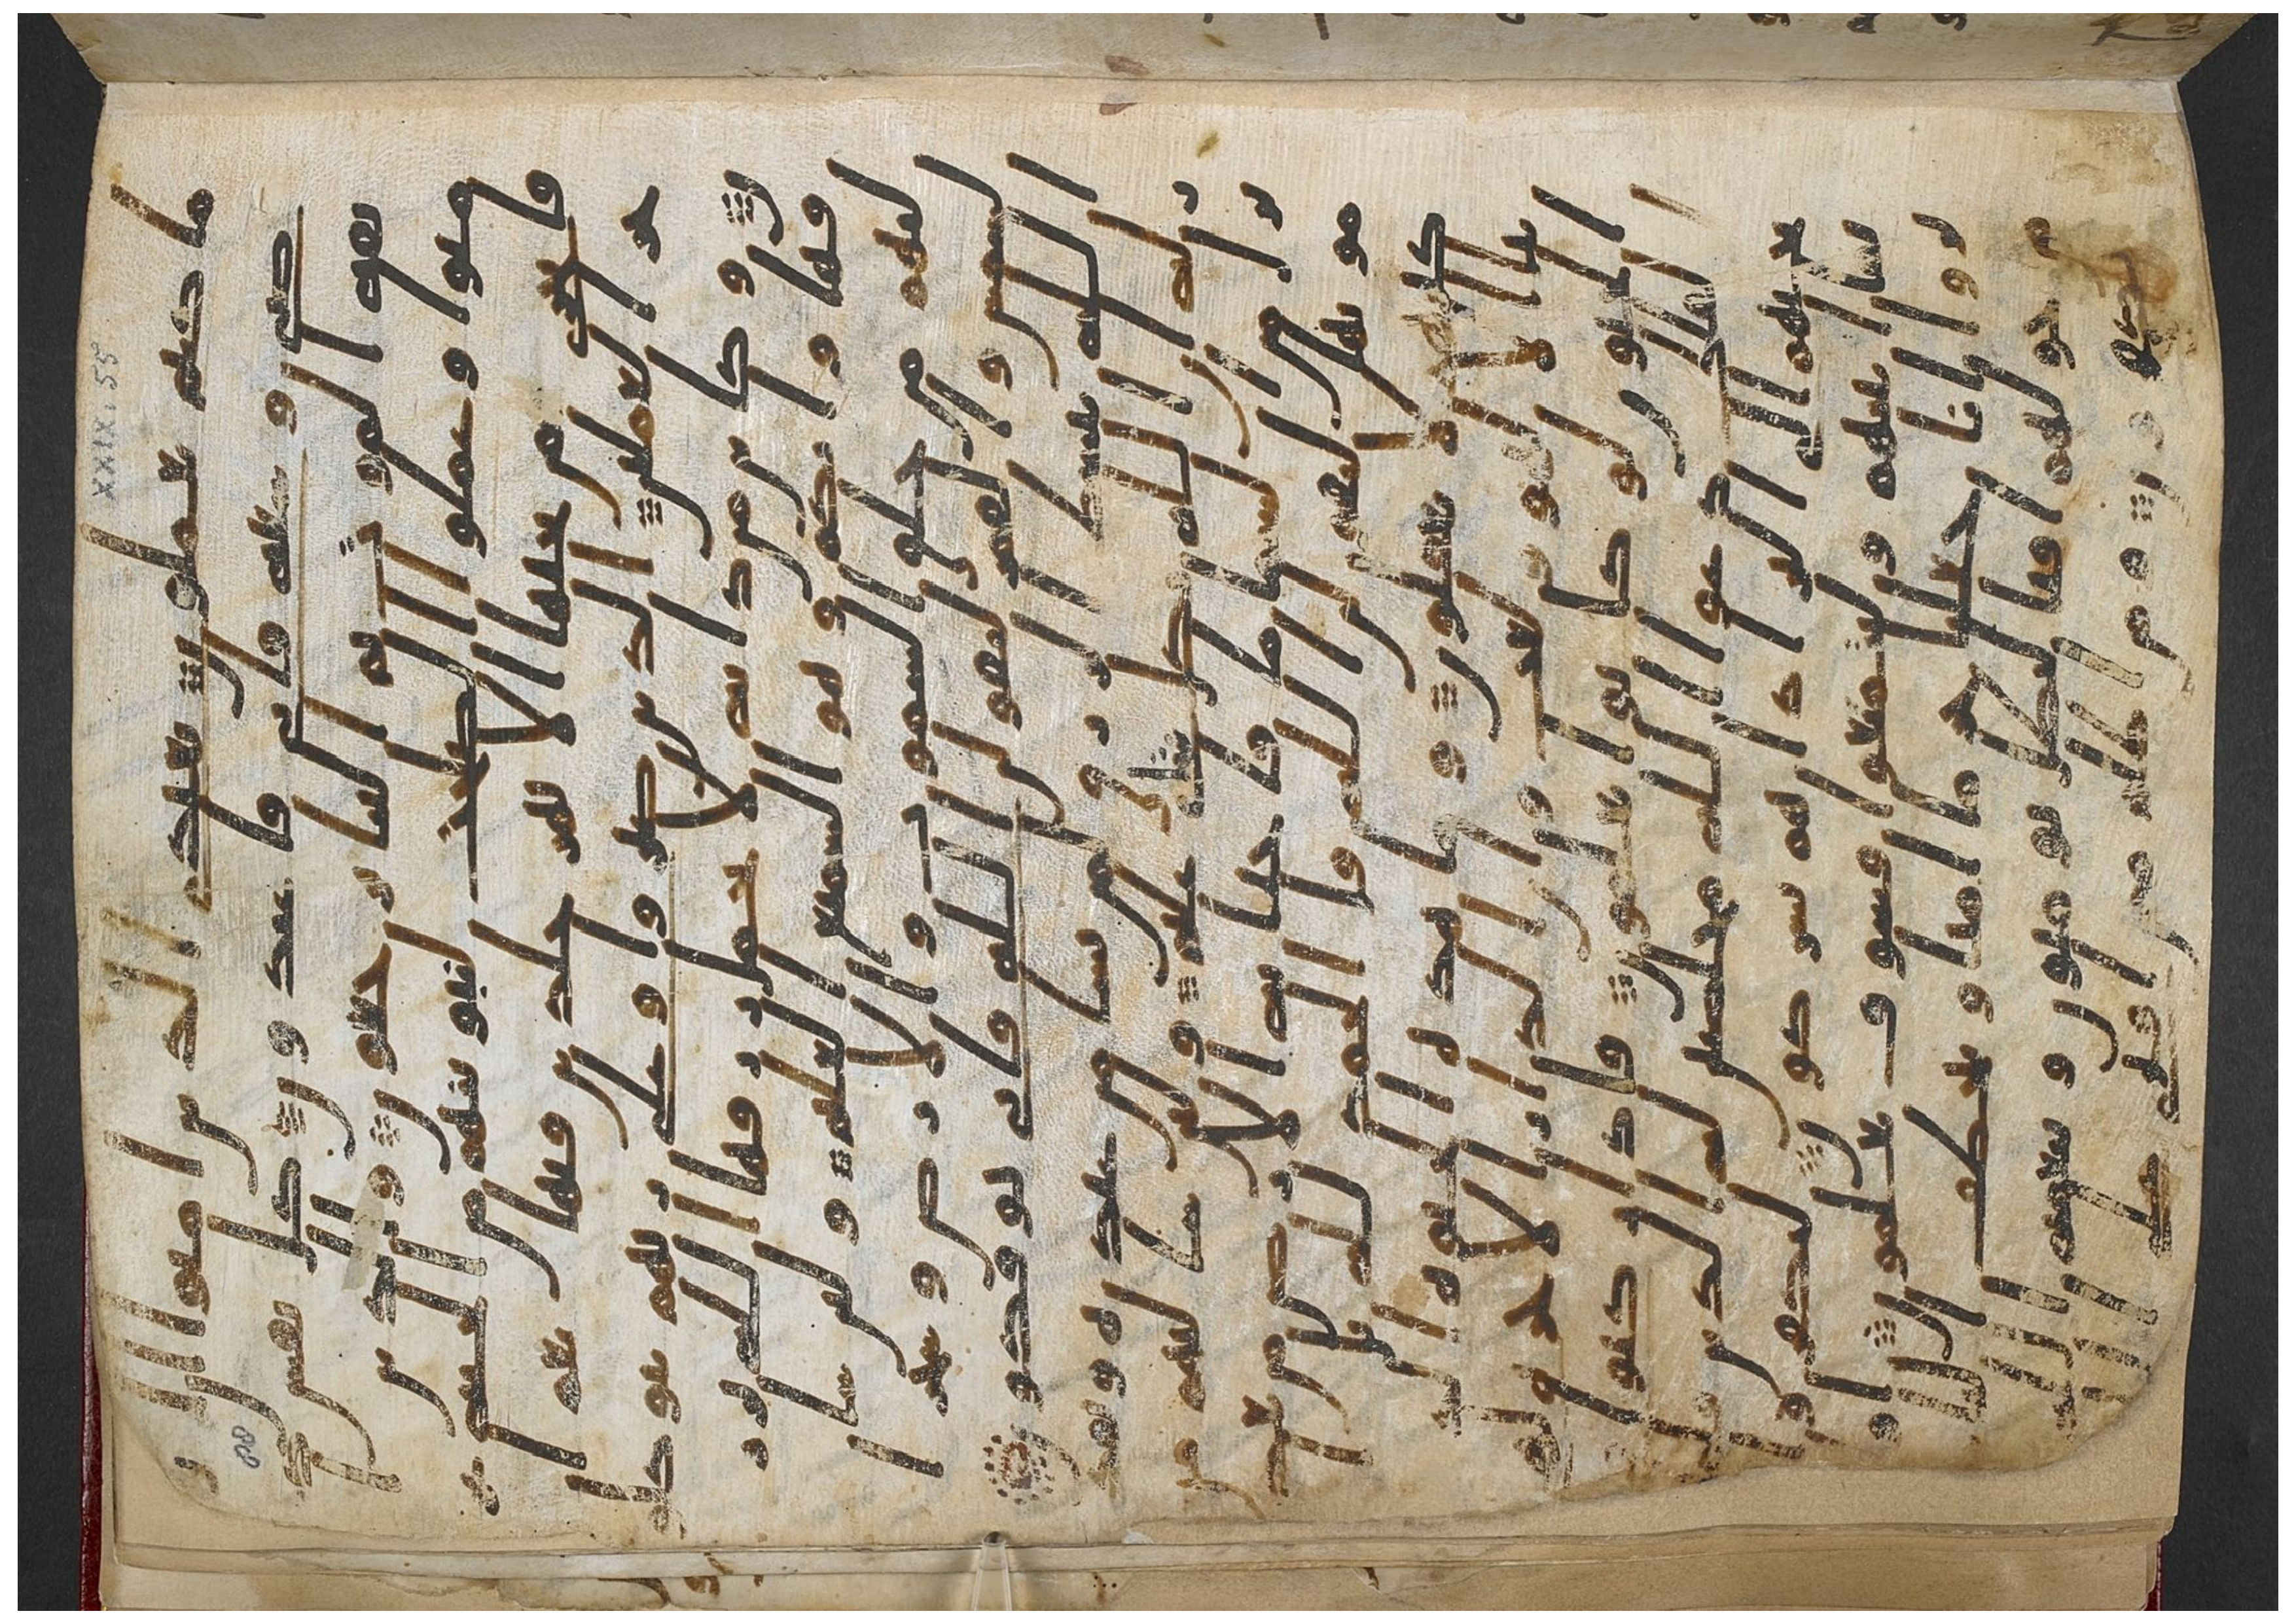 XXIX. 55
88
ما كنتم تعملون يعبادى الذين امنوا ان ار
ضى وسعه فايى فاعبدون كل نفس ذ
يقه الموت ثم الينا ترجعون والذين ا
منوا وعملوا الصلحت لنبوينهم من الجنه غر
فا تجرى من تحتها الانهر خلدين فيها نعم ا
جر العملين الذين صبروا وعلى ربهم يتوكلو
ن وكاين من دابه لا تحمل رزقها الله ير
زقها واياكم وهو السميع العليم ولين سا
لتهم من خلق السموت والارض وسخر ا
لشمس والقمر ليقولن الله فانى يوفكون
الله يبسط الرزق لمن يشا من عباده ويقد
ر له ان الله بكل شى عليم ولين سالتهم من
نزل من السما ما فاحيا به الارض من بعد
موتها ليقولن الله قل الحمد لله بل ا
كثرهم لا يعقلون وما هذه الحيوه الد
نيا الا لهو ولعب وان الدار الاخره لهى
الحيون لو كانوا يعلمون فاذا ركبوا
فى الفلك دعوا الله مخلصين له الدين
فلما نجيهم الى البر اذا هم يشركون ليكفروا
بما اتينهم وليتمتعوا فسوف يعلمون او
لم يروا انا جعلنا حرما امنا ويتخطف النا
س من حولهم افبالبطل يومنون وبنعمه الله
يكفرون ومن اظلم ممن افترى على الله